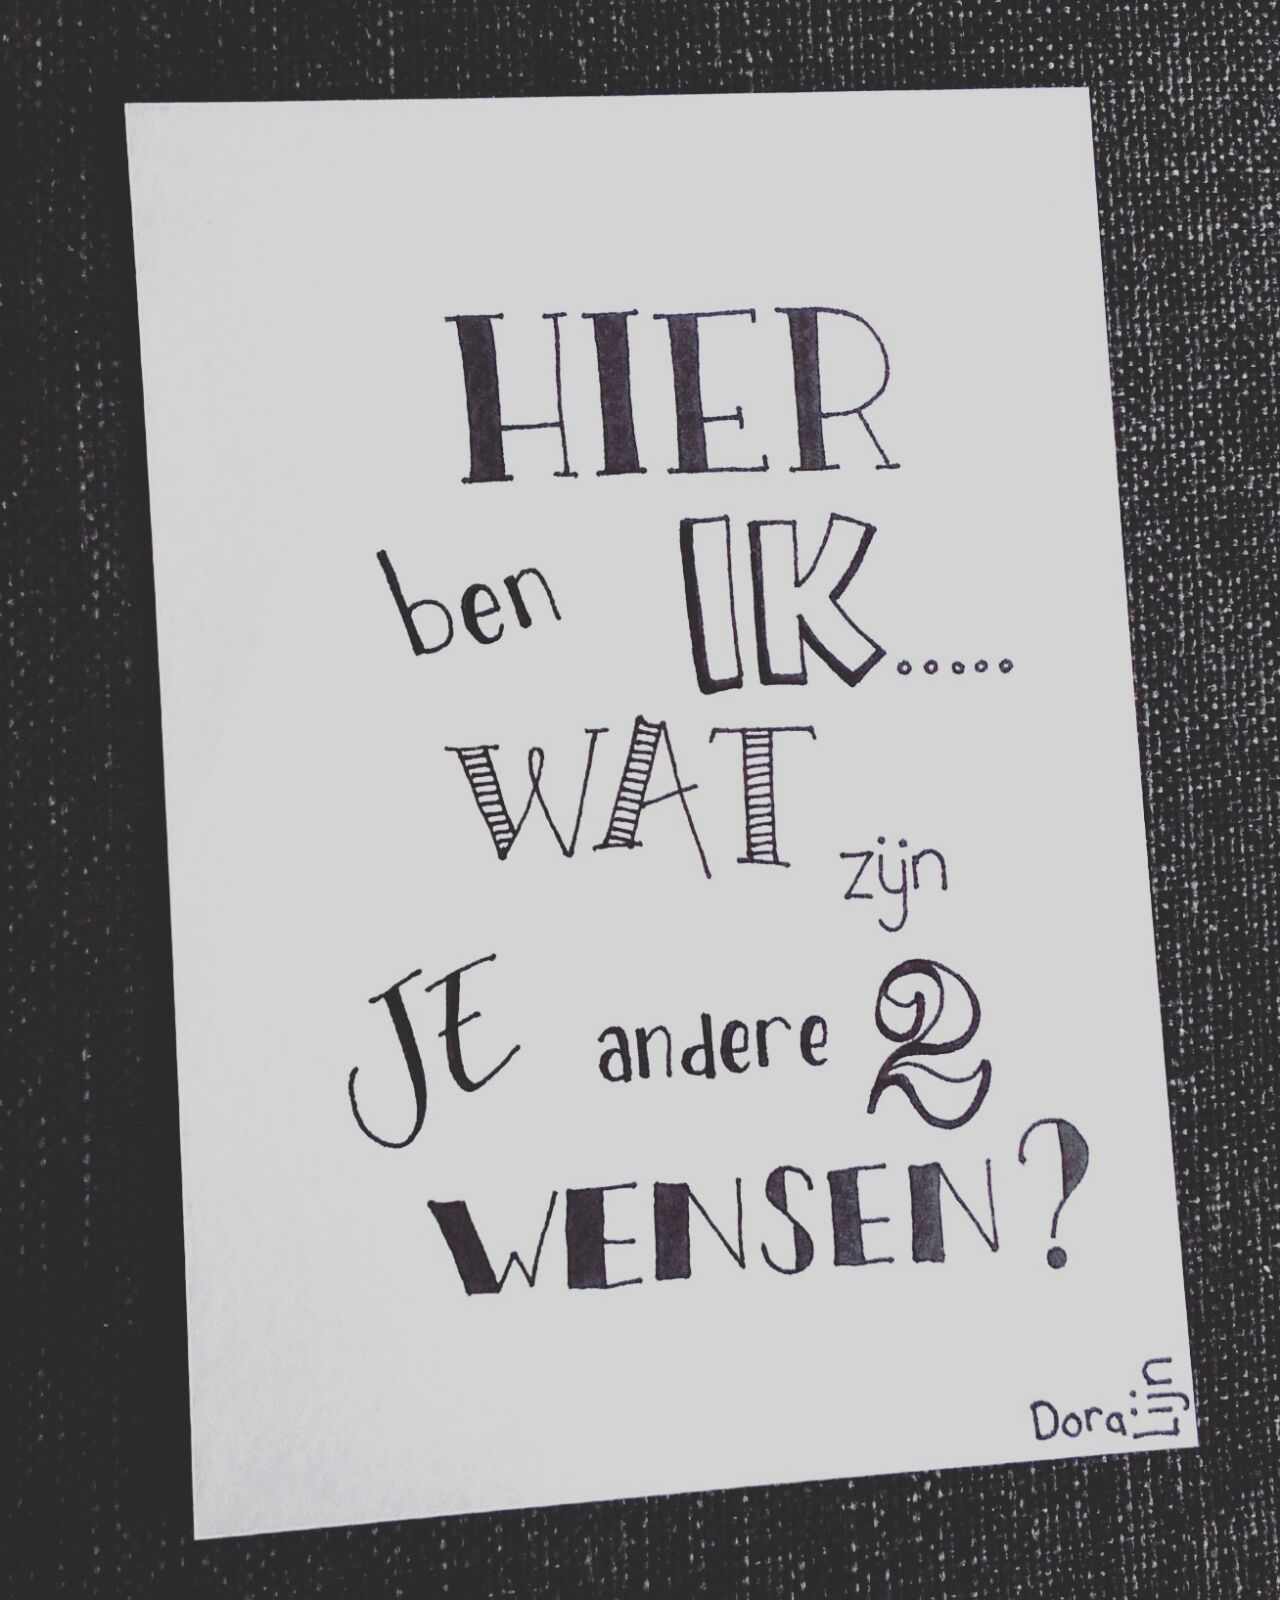 HIER
ben IK.....
WAT zijn
JE andere 2
WENSEN?
Dora Lijn